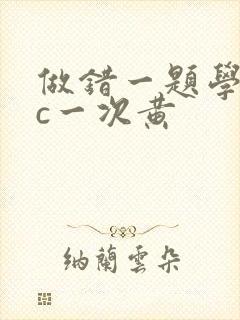 做錯一題學
c一次黃
納蘭雲朵